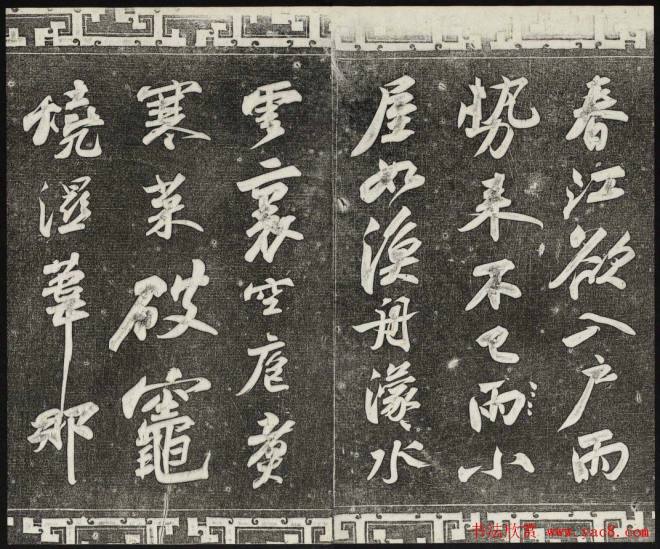 春江欲入户雨
势来不已雨小
屋如漁舟濛水
雲裏空庖煮
寒菜破竈
燒濕葦那
书法欣赏 www.yac8.com